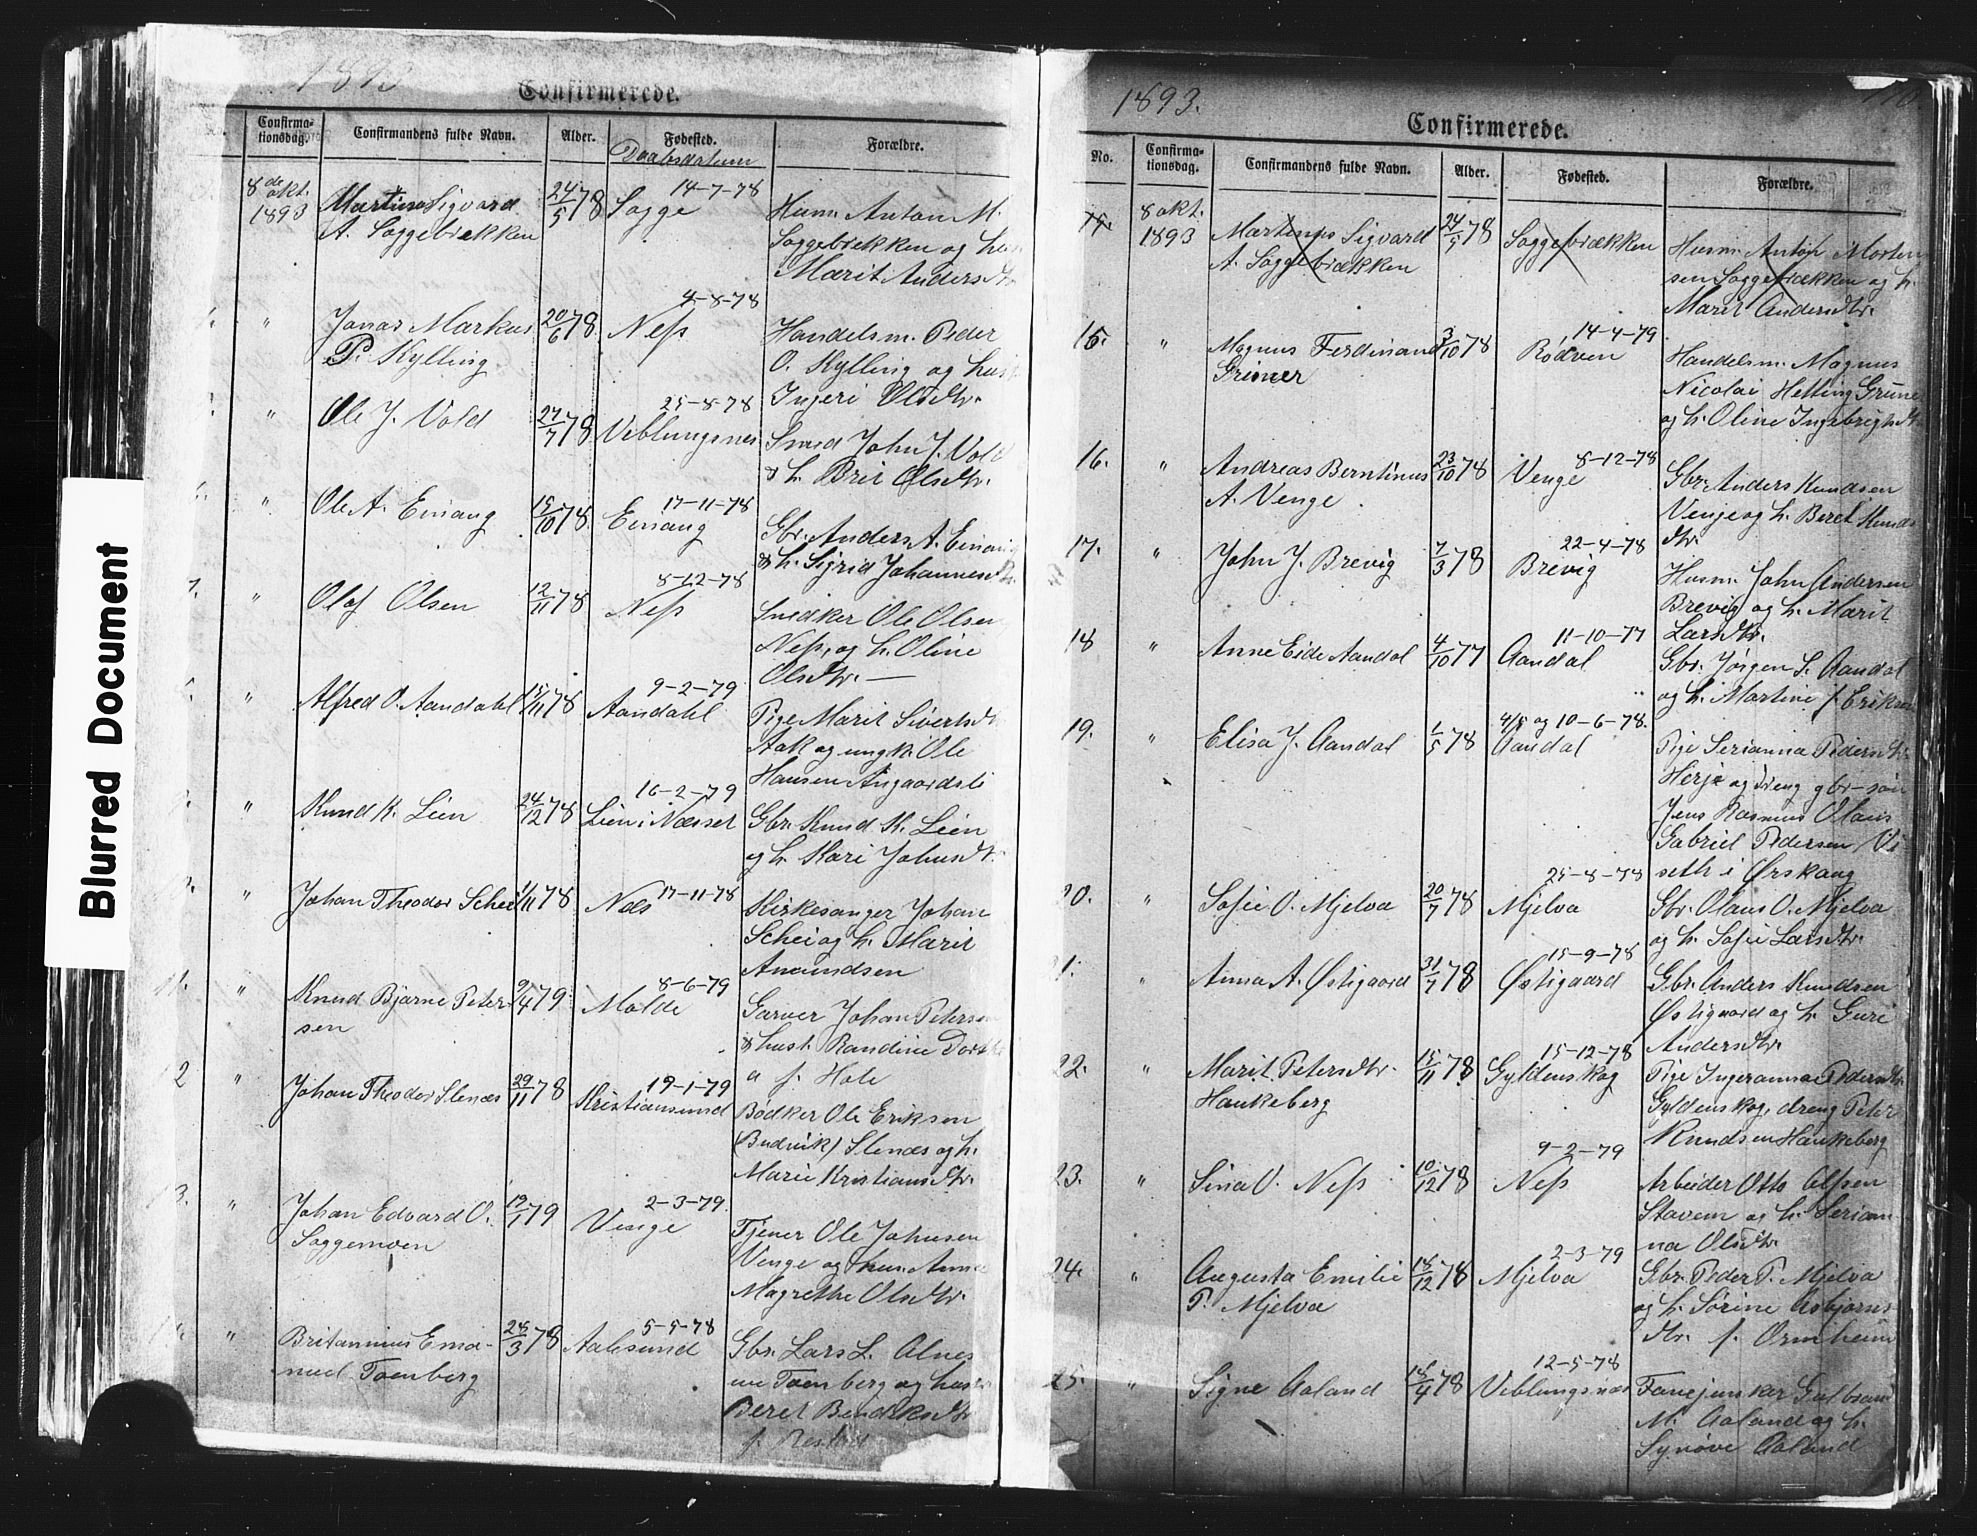 Blurred Document
1893
Confirmerede.
Confirma-
tionsdag.
Confirmandens fulde Navn.
Alder.
Fødested.
Daabsdatum
Forældre.
8de okt.
1893
Martinus Sigvard
A. Soggebrækken
24/5 78
14-7-78
Sogge
Husm. Anton M.
Soggebrækken og
Marit Andersdtr.
"
Jonas Markus
P. Kylling
20/6 78
4-8-78
Neſs
Handelsm. Peder
O. Kylling og hust
Ingeri Olsdtr.
"
Ole J. Vold
27/7 78
25-8-78
Veblungsnes
Smed John J. Vold
& h. Brit Olsdtr.
"
Ole A. Einang
15/10 78
17-11-78
Einang
Gbr. Anders A. Einang
& h. Sigrid Johannesdtr.
7.
"
Olaf Olsen
12/11 78
8-12-78
Neſs
Snedker Ole Olsen
Neſs, og h. Oline
Olsdtr. —
"
Alfred O. Aandahl
15/11 78
9-2-79
Aandahl
Pige Marit Sivertsdtr
Aak og ungk. Ole
Hansen Aagaardsli
"
Knud K. Lien
24/12 78
16-2-79
Lien i Næsset
Gbr. Knud K. Lien
og h. Kari Johnsdtr.
"
Johan Theodor Schei
1/11 78
17-11-78
Næs
Kirkesanger Johan
Schei og h. Marit
Amundsen
11.
"
Knud Bjarne Peter-
sen
9/4 79
8-6-79
Molde
Garver Johan Petersen
& hust. Randine Dorthe
a f. Hole
2
"
Johan Theodor Stenæs
29/11 78
19-1-79
Kristianssund
Bødker Ole Eriksen
(Budvik) Stenæs og h.
Marie Kristiansdtr.
3.
"
Johan Edvard O.
Soggemoen
19/1 79
2-3-79.
Venge
Tjener Ole Johnsen
Venge og hus. Anna
Magrethe Olsdtr.
"
Britannius Ema-
nuel Tornberg
28/3 78
5-5-78
Aalesund
Gbr. Lars L. Alnes
Tornberg og hust
Beret Bendiksdtr
f.
1893.
110.
Confirmerede.
No.
Confirma-
tionsdag.
Confirmandens fulde Navn.
Alder.
Fødested.
Forældre.
15.
8 okt.
1893
Martinus Sigvard
A. Soggebrækken
24/5 78
Soggebrækken
Husm. Anton Morten
sen Soggebrækken og h.
Marit Andersdtr.
15.
"
Magnus Ferdinand
Grüner
3/10 78
14-4-79
Rødven
Handelsm. Magnus
Nicolai Hetting Grüner
og h. Oline Ingebrigtsdtr
16.
"
Andreas Berntinus
A. Venge
23/10 78
8-12-78
Venge
Gbr. Anders Knudsen
Venge og h. Beret Knuds
dtr.
17.
"
John J. Brevig
7/3 78
22-4-78
Brevig
Husm. John Andersen
Brevig og h. Marit
Larsdtr.
18
"
Anne Eide Aandal
4/10 77
11-10-77
Aandal
Gbr. Jørgen S. Aandal
og h. Martine f. Eriksen
19.
"
Elisa J. Aandal
1/5 78
4/5 og 10-6-78.
Aandal
Pige Serianna Pedersdtr.
Herje og dreng gbr-søn
Jens Rasmus Olaus
Gabriel Pedersen Vi-
seth i Ørskoug
20.
"
Sofie O. Mjelva
20/7 78
25-8-78
Mjelva
Gbr. Olaus O. Mjelva
og h. Sofie Larsdtr.
21.
"
Anna A. Østigaard
31/7 78
15-9-78
Østigaard
Gbr. Anders Knudsen
Østigaard og h. Guri
Andersdtr.
22.
"
Marit Petersdtr.
Haukeberg
15/11 78
15-12-78
Gyldenskog
Pige Ingeranna Pedersdtr.
Gyldenskog, dreng Peter
Knudsen Haukeberg
23.
"
Sina O. Neſs
10/12 78
9-2-79
Neſs
Arbeider Otto Olsen
Stavem og h. Serian-
na Olsdtr.
24.
"
Augusta Emilie
P. Mjelva
18/12 78
2-3-79
Mjelva
Gbr. Peder P. Mjelva
og h. Sørine Asbjørns
dtr. f. Ormheim
25.
"
Signe Aaland
18/4 78
12-5-78
Veblungsnæs
Fanejunker Gulbrand
M. Aaland og h.
Synøve Aaland